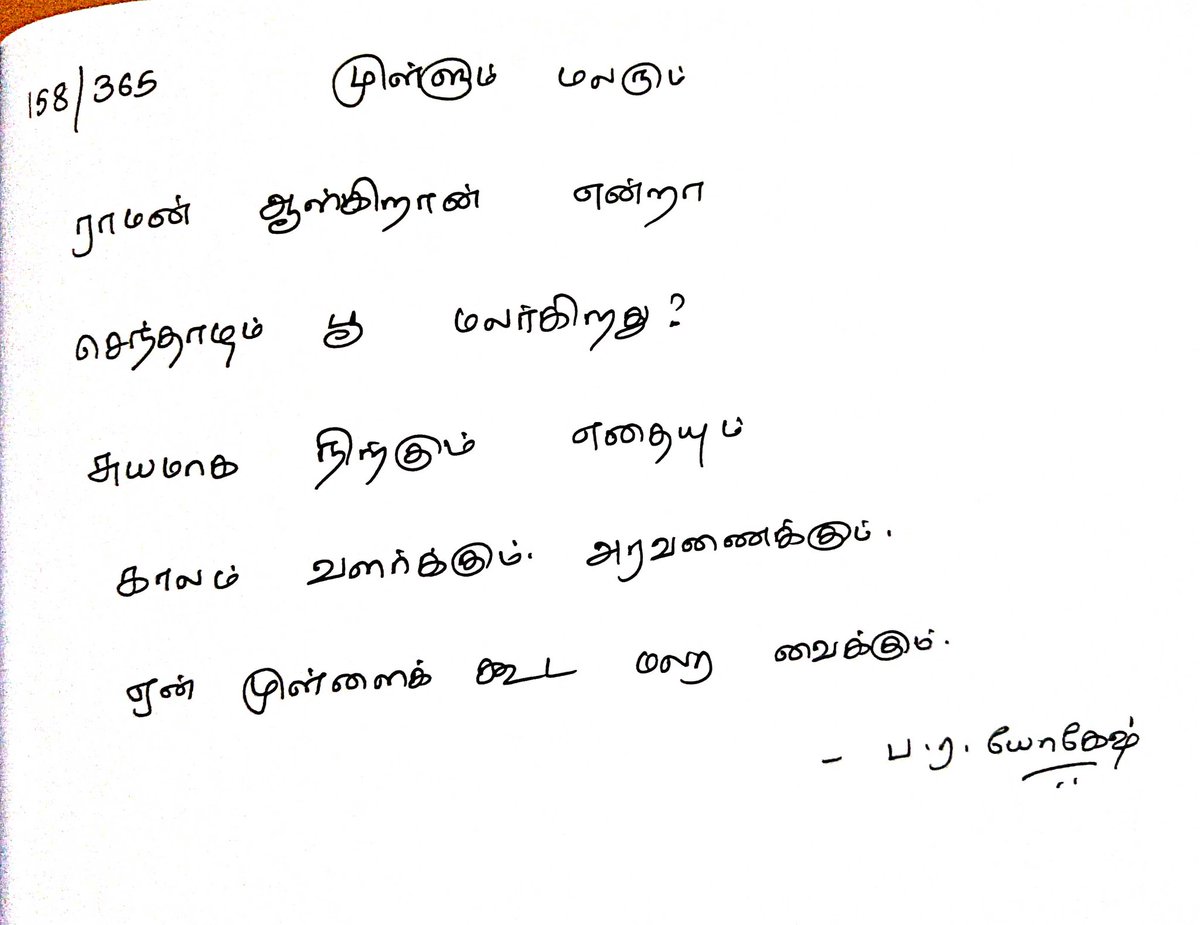 158/365 முள்ளும் மலரும்
ராமன் ஆள்கிறான் என்றா
செந்தாழம் பூ மலர்கிறது?
சுயமாக நிற்கும் எதையும்
காலம் வளர்க்கும். அரவணைக்கும்.
ஏன் முள்ளைக் கூட மலற வைக்கும்.
- ப.ர. யோகேஷ்